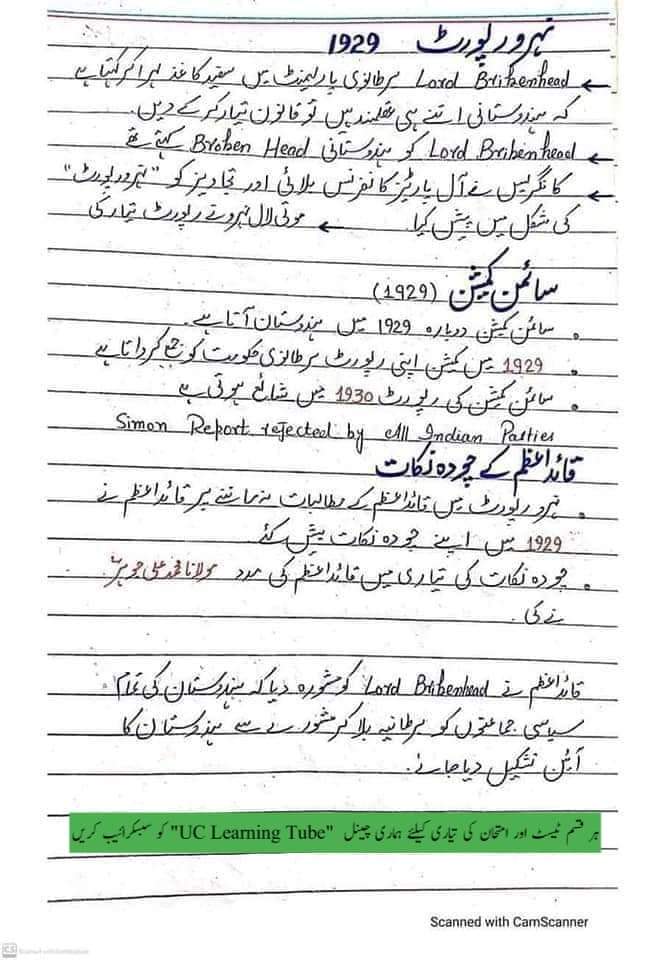 نہرو رپورٹ 1929
← Lord Brikenhead برطانوی پارلیمنٹ میں سفید کاغذ لہرا کر کہتا ہے
کہ ہندوستانی اتنے ہی عقلمند ہیں تو قانون تیار کر کے دیں۔
← Lord Bribenhead کو ہندوستانی Broben Head کہتے تھے
← کانگریس نے آل پارٹیز کانفرنس بلائی اور تجاویز کو "نہرو رپورٹ"
کی شکل میں پیش کیا۔ ← موتی لال نہرو نے رپورٹ تیار کی
سائمن کمیشن (1929)
• سائمن کمیشن دوبارہ 1929 میں ہندوستان آتا ہے۔
• 1929 میں کمیشن اپنی رپورٹ برطانوی حکومت کو جمع کرواتا ہے
• سائمن کمیشن کی رپورٹ 1930 میں شائع ہوتی ہے
Simon Report rejected by All Indian Parties
قائداعظم کے چودہ نکات
• نہرو رپورٹ میں قائداعظم کے مطالبات نہ ماننے پر قائداعظم نے
1929 میں اپنے چودہ نکات پیش کئے۔
• چودہ نکات کی تیاری میں قائداعظم کی مدد مولانا محمد علی جوہر
نے کی۔
قائداعظم نے Lord Bribenhead کو مشورہ دیا کہ ہندوستان کی تمام
سیاسی جماعتوں کو برطانیہ بلا کر مشورے سے ہندوستان کا
آئین تشکیل دیا جائے۔
ہر قسم ٹیسٹ اور امتحان کی تیاری کیلئے ہماری چینل "UC Learning Tube" کو سبسکرائیب کریں
Scanned with CamScanner
CS Scanned with CamScanner